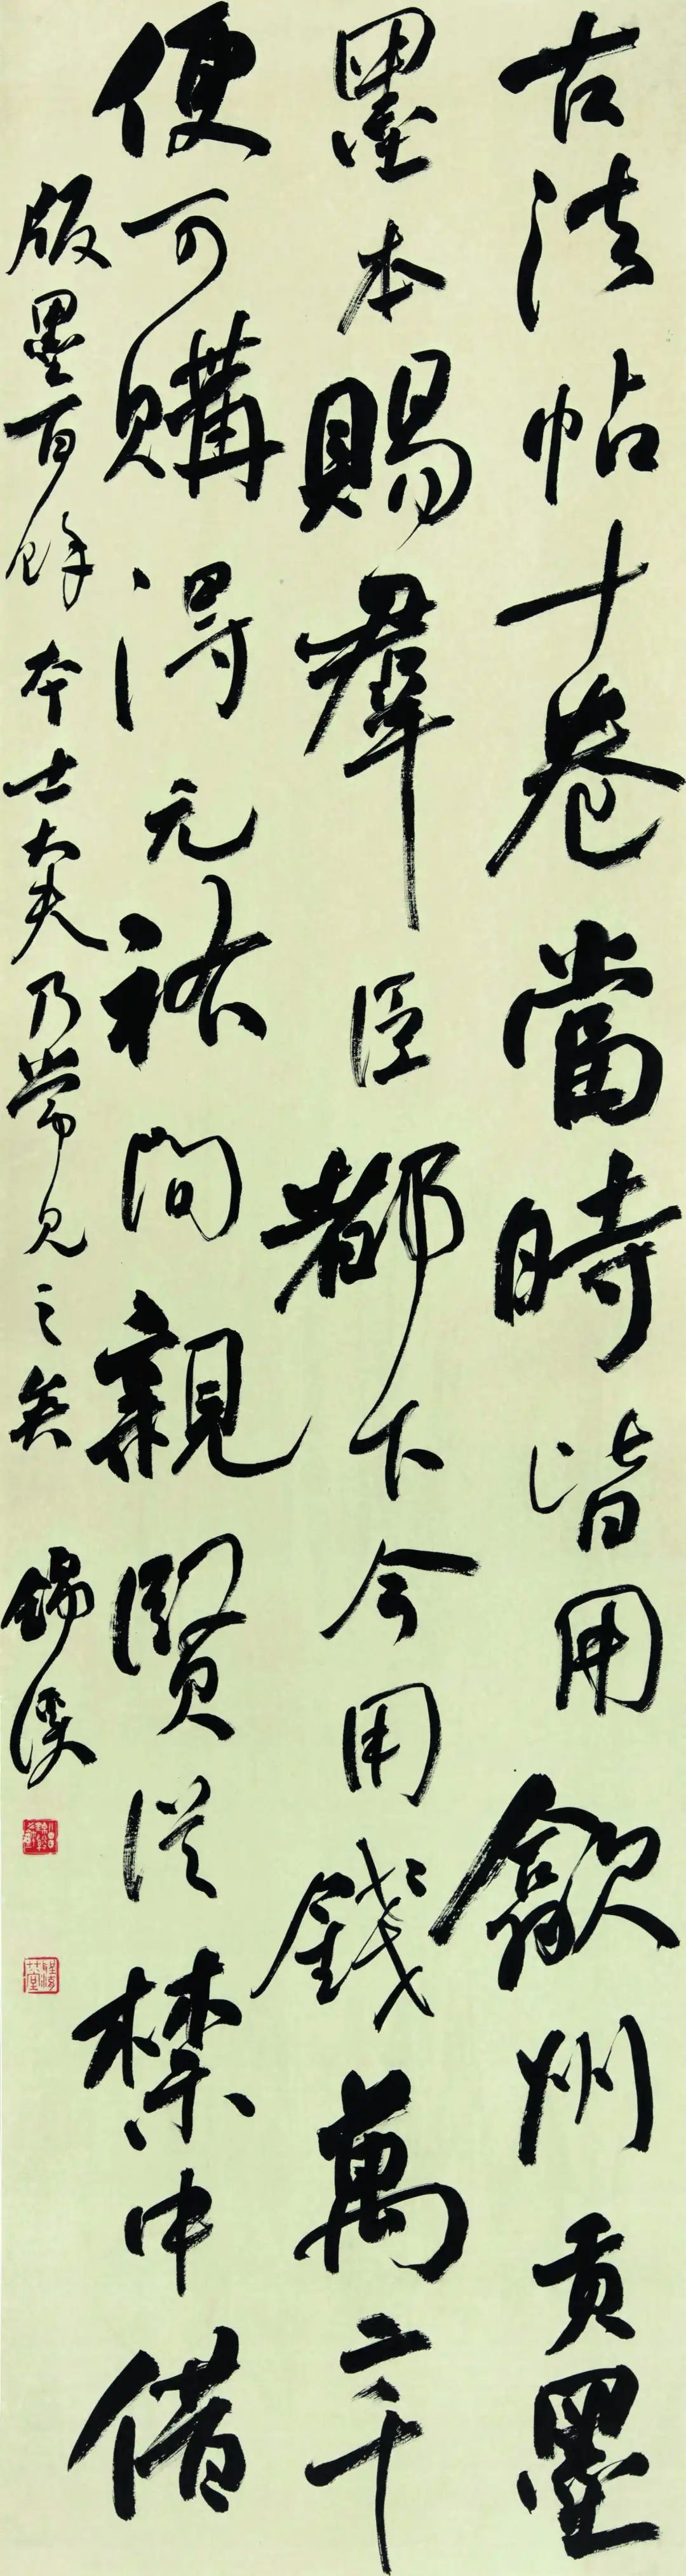 古法帖十卷當時皆用歙州貢墨
墨本賜羣臣都下今用錢萬二千
便可購得元祐間親賢從禁中借
版墨百餘本士大夫乃常見之矣
錫溪